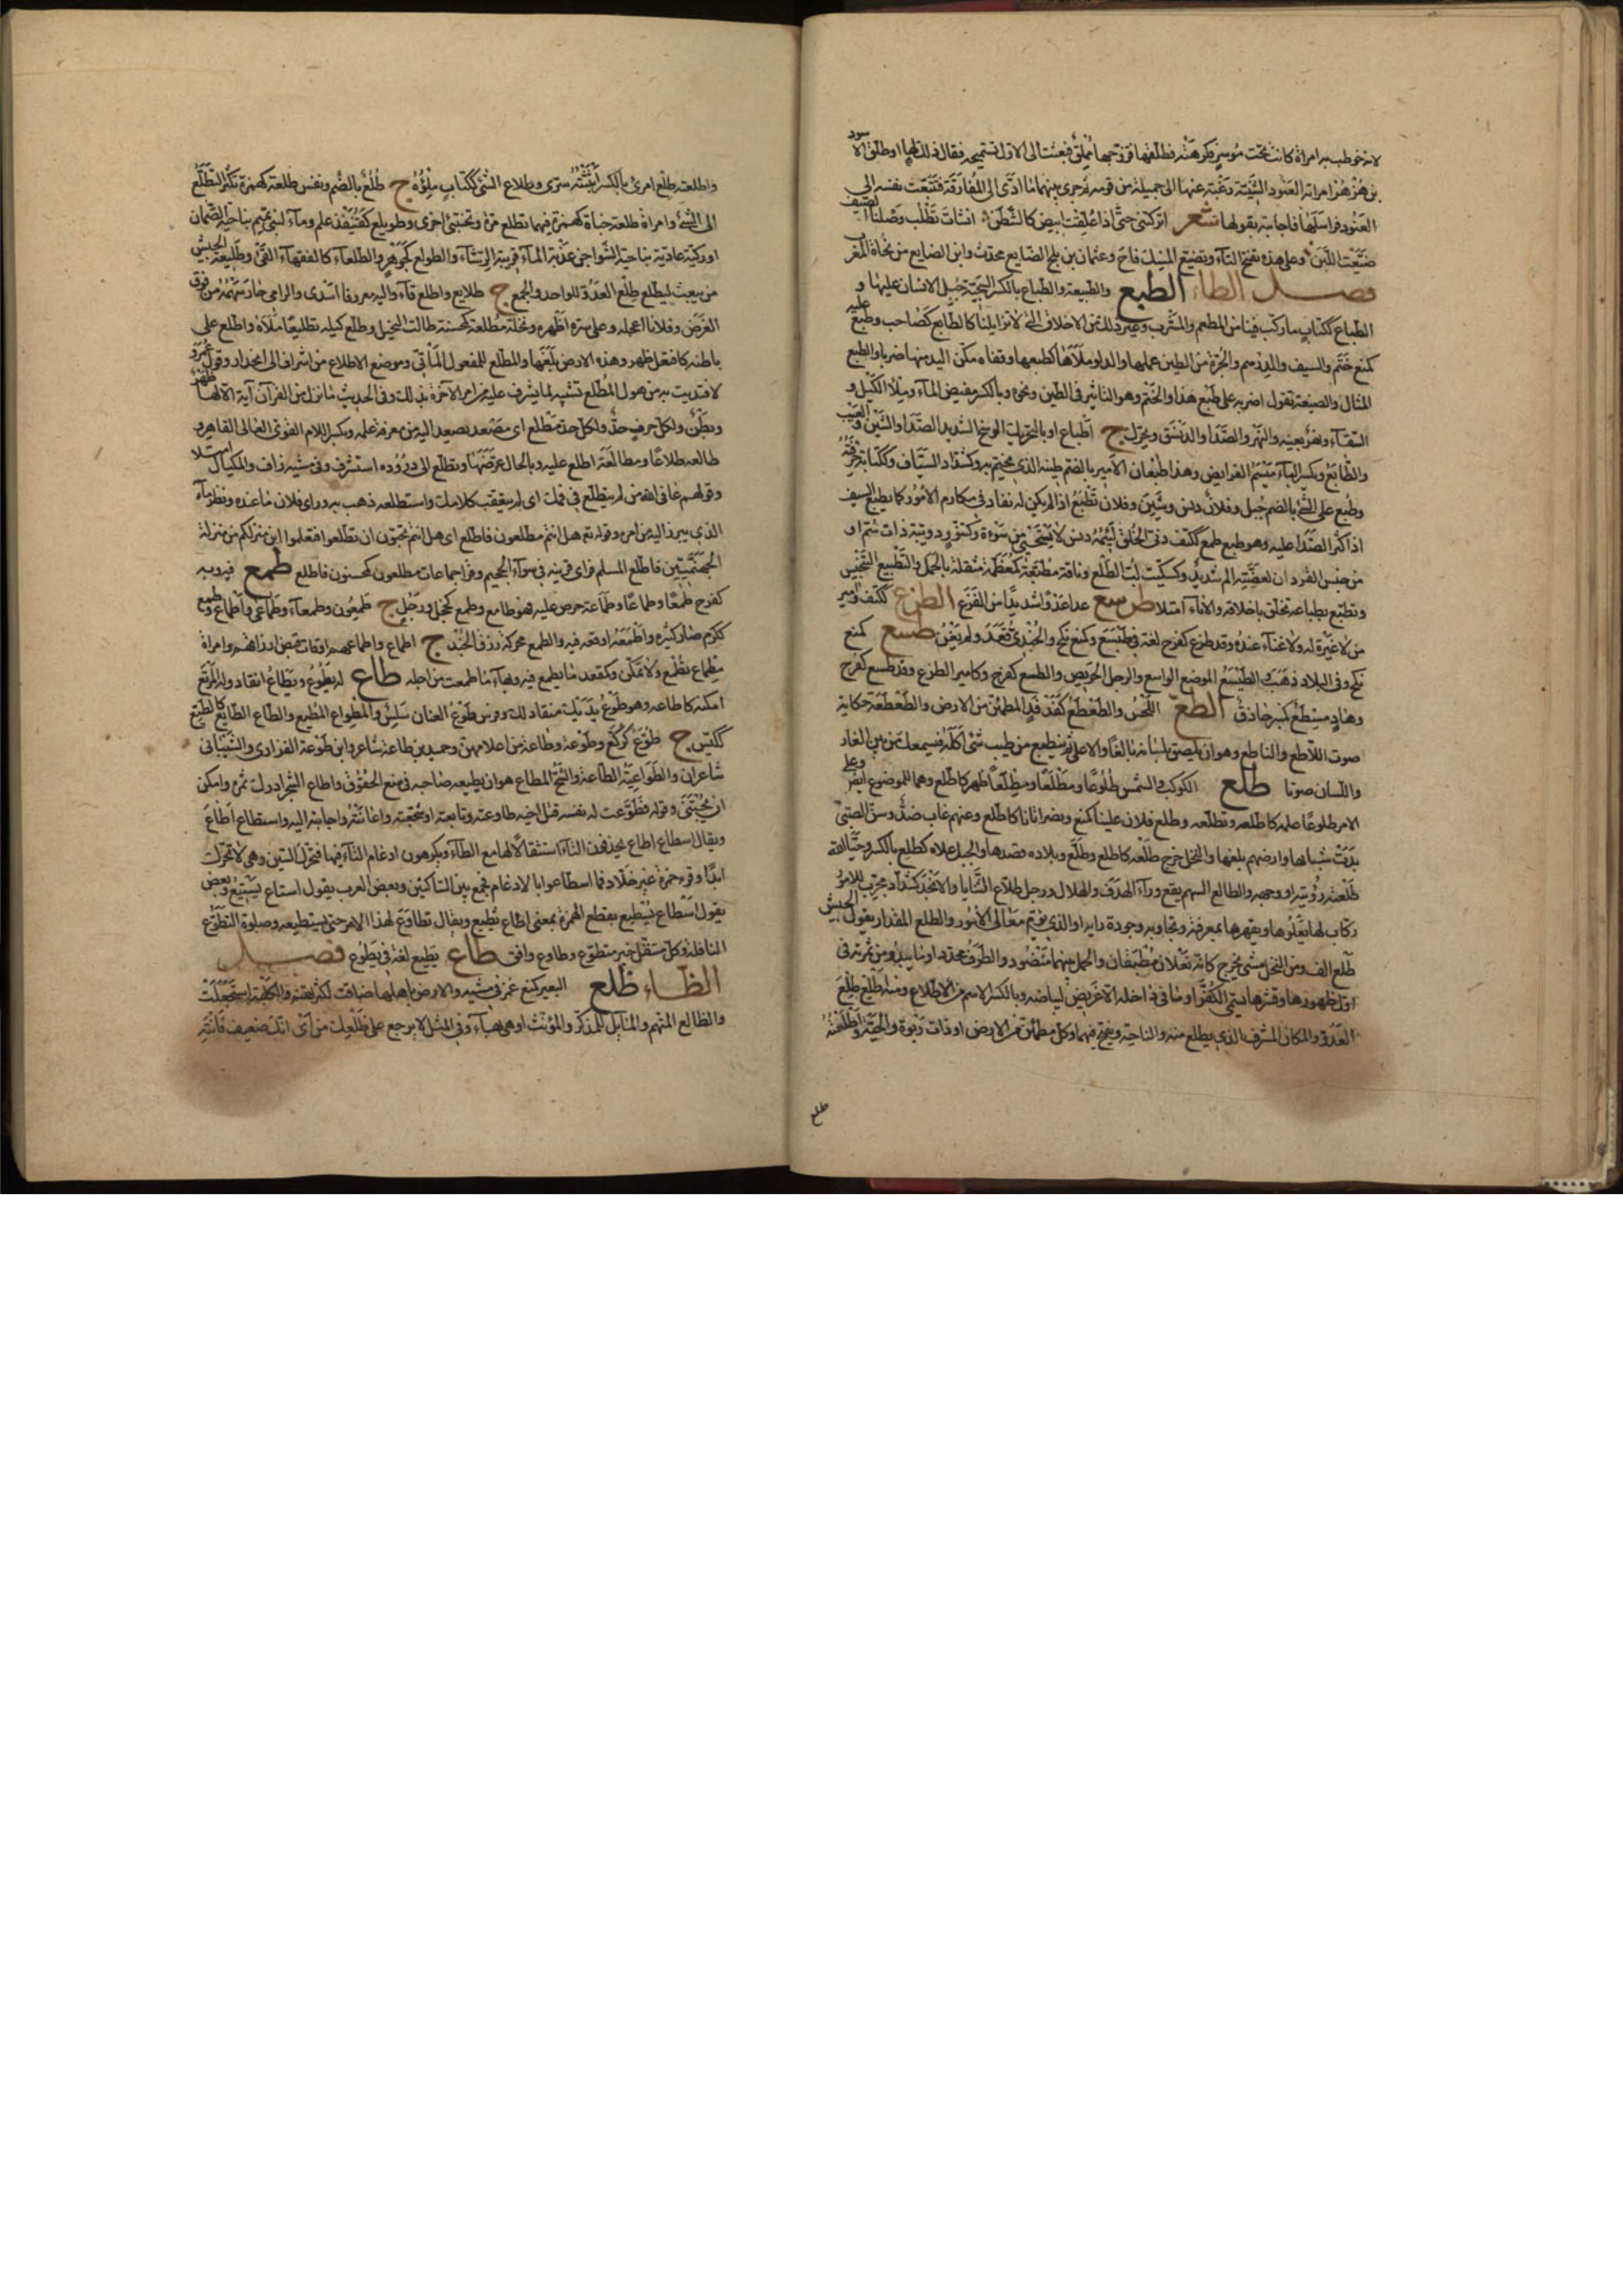 لانه خوطب به امراة كانت تحت موسر فكرهته فطلقها فتزوجها مملق فبعثت الى الاول تستميحه فقال ذلك لها او طلق الاسود
بن هرمز امراته العنود الشنية رغبة عنها الى جميلة من قومه ثم جرى بينهما ما ادى الى المفارقة فتتبعت نفسه الى
العنود فراسلها فاجابته بقولها شعر اتركتني حتى اذا علقت ابيض كالشطن انشات تطلب وصلنا في الصيف
ضيعت اللبن وعلى هذه بفتح التاء وتضيع المسك فاح وعثمان بن بلج الضايع محدث وابن الضايع من نحاة المغرب
فصل الطاء الطبع والطبيعة والطباع بالكسر السجية جبل الانسان عليها و
الطباع ككتاب ما ركب فينا من المطعم والمشرب وغير ذلك من الاخلاق التي لا تزايلنا كالطابع كصاحب وطبع عليه
كمنع ختم والسيف والدرهم والجرة من الطين عملها والدلو ملاها كطبعها وقفاه مكن اليد منها ضربا والطبع
المثال والصيغة تقول اضربه على طبع هذا والختم وهو التاثير في الطين ونحوه وبالكسر مغيض الماء وملء الكيل و
السقاء ونهر بعينه والنهر والصدا والدنس ويحرك ج اطباع او بالتحريك الوسخ الشديد الصدا والشين والعيب
والطابع وتكسر الباء ميسم الفرايض وهذا طبعان الامير بالضم طينه الذي يختم به وكشداد السياف وككتابة حرفته
وطبع على الشئ بالضم جبل وفلان دنس وشين وفلان تطبع اذا لم يكن له نفاد في مكارم الامور كما يطبع السيف
اذا كثر الصدا عليه وهو طبع طمع ككتف دنى الخلق لئيمه دنس لا يستحيي من سوءة وكتنور دويبة ذات سم او
من جنس القردان لعضته الم شديد وكسكيت لب الطلع وناقة مطبعة كمعظمة مثقلة بالحمل والتطبيع التنجيس
وتطبع بطباعه تخلق باخلاقه والاناء امتلا طرسع عدا عدوا شديدا من الفزع الطزع ككتف وامير
من لا غيرة له ولا غناء عنده وقد طزع كفرح لغة في طسع وكمنع نكح والجندي قعد ولم يغز طسع كمنع
نكح وفي البلاد ذهب والطيسع الموضع الواسع والرجل الحريص والطسع كفرح وكامير الطزع وقد طسع كفرح
وهاد مسطع كمنبر حاذق الطع اللحس والطعطع كفدفد المطمئن من الارض والطعطعة حكاية
صوت اللاطع والناطع وهو ان يلصق لسانه بالغار الاعلى ثم ينطع من طيب شئ اكله فيسمع من بين الغار
واللسان صوتا طلع الكوكب والشمس طلوعا ومطلعا ومطلعا ظهر كاطلع وهما للموضع ايض وعلى
الامر طلوعا علمه كاطلعه وتطلعه وطلع فلان علينا كمنع ونصر اتانا كاطلع وعنهم غاب ضد وسن الصبي
بدت شباتها وارضهم بلغها والنخل خرج طلعه كاطلع وطلع وبلاده قصدها والجبل علاه كطلع بالكسر وحيا الله
طلعته رؤيته او وجهه والطالع السهم يقع وراء الهدف والهلال ورجل طلاع الثنايا والانجد كشداد مجرب للامور
ركاب لها يعلوها ويقهرها بمعرفته وتجاربه وجودة رايه او الذي يؤم معالى الامور والطلع المقدار يقول الجيش
طلع الف ومن النخل شئ يخرج كانه نعلان مطبقان والحمل بينهما منضود والطرف محدد او ما يبدو من ثمرته في
اول ظهورها وقشرها يسمى الكفرى وما في داخله الاغريض لبياضه وبالكسر الاسم من الاطلاع ومنه اطلع طلع
العدو والمكان المشرف الذي يطلع منه والناحية ويفتح فيهما وكل مطمئن من الارض او ذات ربوة والحية واطلعته
طلع
واطلعته طلع امرى بالكسر ابثثته سرى وطلاع الشئ ككتاب ملؤه ج طلع بالضم ونفس طلعة كهمزة تكثر التطلع
الى الشئ وامراة طلعة خباة كهمزة فيهما تطلع مرة وتختبئ اخرى وطويلع كقنيفذ علم وماء لبني تميم بناحية الصمان
او ركية عادية بناحية الشواجن عذبة الماء قريبة الرشاء والطولع كجوهر والطلعاء كالفقهاء القئ وطليعة الجيش
من يبعث ليطلع طلع العدو للواحد والجمع ج طلايع واطلع قاء واليه معروفا اسدى والرامى جاز سهمه من فوق
الغرض وفلانا اعجله وعلى سره اظهره ونخلة مطلعة كمحسنة طالت النخيل وطلع كيله تطليعا ملاه واطلع على
باطنه كافتعل ظهر وهذه الارض بلغها والمطلع للمفعول المأتى وموضع الاطلاع من اشراف الى انحدار وقول عمر
لافتديت به من هول المطلع تشبيه لما يشرف عليه من امر الاخرة بذلك وفي الحديث ما نزل من القران اية الا لها ظهر
وبطن ولكل حرف حد ولكل حد مطلع اى مصعد يصعد اليه من معرفة علمه وبكسر اللام القوى العالى القاهر و
طالعه طلاعا ومطالعة اطلع عليه وبالحال عرضها وتطلع الى وروده استشرف وفي مشيه زاف والمكيال امتلا
وقولهم عافى الله من لم يتطلع في فمك اى لم يتعقب كلامك واستطلعه ذهب به وراى فلان ما عنده ونظر ما
الذي يبرز اليه من امره وقوله تع هل انتم مطلعون فاطلع اى هل انتم تحبون ان تطلعوا فتعلموا اين منزلتكم من منزلة
الجهنميين فاطلع المسلم فراى قرينه في سواء الجحيم وقرا جماعات مطلعون كمحسنون فاطلع طمع فيه وبه
كفرح طمعا وطماعا وطماعية حرص عليه فهو طامع وطمع كخجل ورجل ج طمعون وطمعاء وطماعى واطماع وطمع
ككرم صار كثيره واطمعه اوقعه فيه والطمع محركة رزق الجند ج اطماع واطماعهم اوقات قبض ارزاقهم وامراة
مطماع تطمع ولا تمكن وكمقعد ما يطمع فيه وبهاء ما طمعت من اجله طاع له يطوع ويطاع انقاد وله المرتع
امكنه كاطاعه وهو طوع يديك منقاد لك وفرس طوع العنان سلس والمطواع المطيع والطاع الطايع كالطيع
ككيس ج طوع كركع وطوعة وطاعة من اعلامهن وحميد بن طاعة شاعر وابن طوعة الفزارى والشيبانى
شاعران والطواعية الطاعة والشح المطاع هو ان يطيعه صاحبه في منع الحقوق واطاع الشجر ادرك ثمره وامكن
ان يجتنى وقوله فطوعت له نفسه قتل اخيه طاوعته وتابعته او شجعته واعانته واجابته اليه واستطاع اطاع
ويقال اسطاع اطاع بحذفون التاء استثقالا لها مع الطاء ويكرهون ادغام التاء فيها فتحرك السين وهي لا تحرك
ابدا وقرء حمزة غير خلاد فما اسطاعوا بالادغام فجمع بين الساكنين وبعض العرب يقول استاع يستيع وبعض
يقول اسطاع يسطيع بقطع الهمزة بمعنى اطاع يطيع ويقال تطاوع لهذا الامر حتى يستطيعه وصلوة التطوع
النافلة وكل متنفل خير متطوع وطاوع وافق طاع يطيع لغة في يطوع فصل
الظاء ظلع البعير كمنع غمز في مشيه والارض باهلها ضاقت لكثرتهم والكلبة استجعلت
والظالع المتهم والمايل للمذكر والمؤنث او هي بهاء وفي المثل لا يربع على ظلعك من اى انك ضعيف فانته